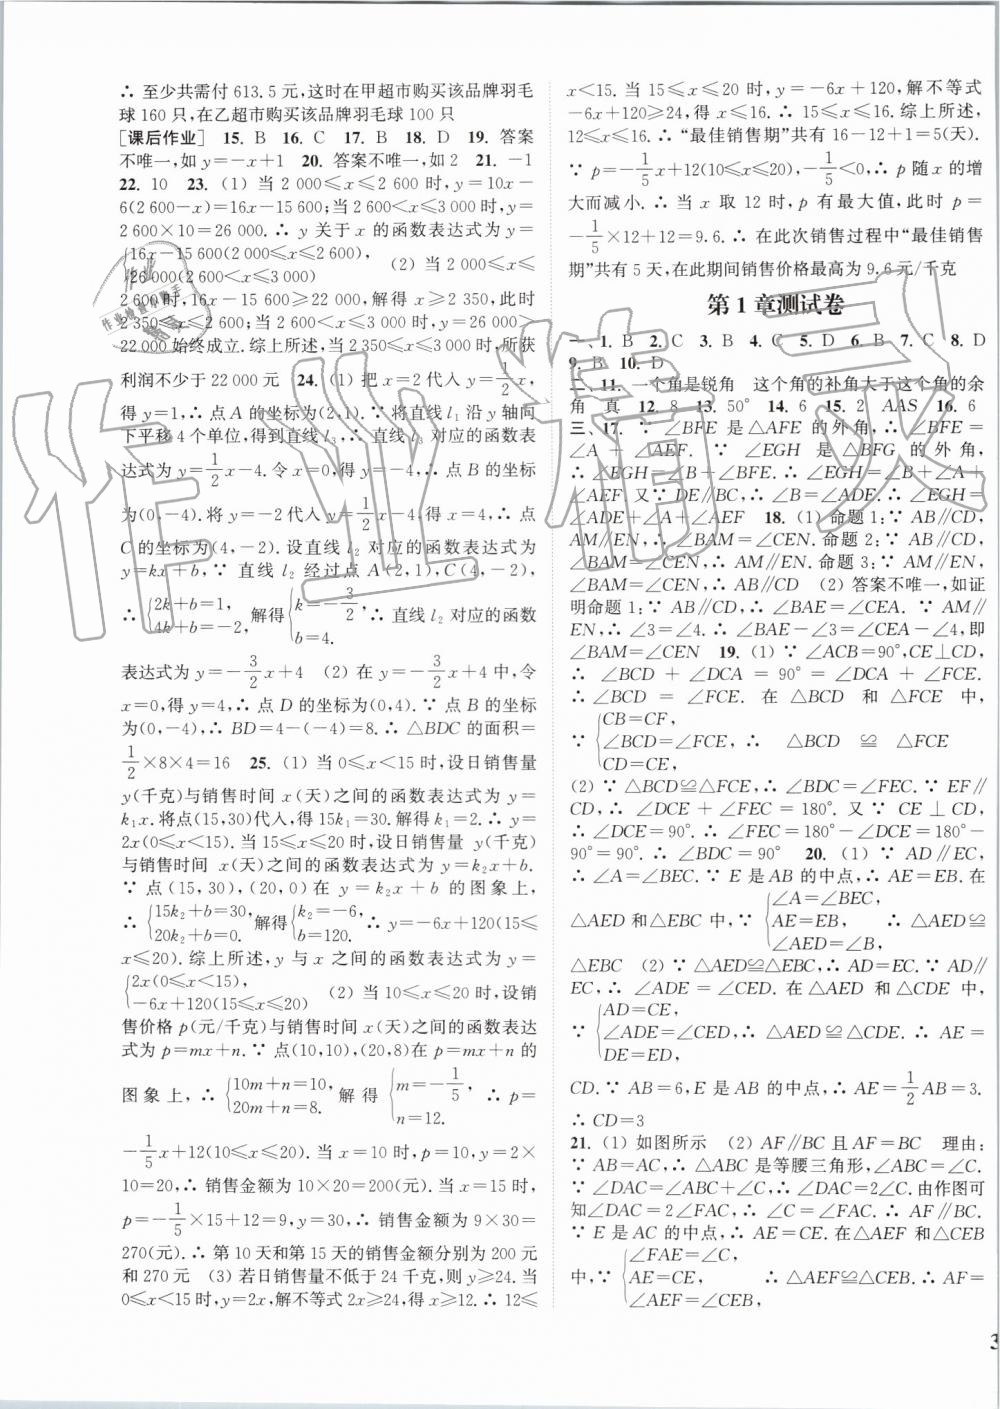 ∴ 至少共需付 613.5 元,这时在甲超市购买该品牌羽毛
球 160 只,在乙超市购买该品牌羽毛球 100 只
[课后作业] 15. B 16. C 17. B 18. D 19. 答案
不唯一,如 y=-x+1 20. 答案不唯一,如 2 21. -1
22. 10 23. (1) 当 2 000≤x≤2 600 时,y=10x-
6(2 600-x)=16x-15 600;当 2 600<x≤3 000 时,y=
2 600×10=26 000. ∴ y 关于 x 的函数表达式为 y=
{16x-15 600(2 000≤x≤2 600),
26 000(2 600<x≤3 000) (2) 当 2 000≤x≤
2 600 时,16x-15 600≥22 000,解得 x≥2 350,此时
2 350≤x≤2 600;当 2 600<x≤3 000 时,26 000>
22 000 始终成立.综上所述,当 2 350≤x≤3 000 时,所获
利润不少于 22 000 元 24. (1) 把 x=2 代入 y=1/2 x,
得 y=1,∴ 点 A 的坐标为(2,1).∵ 将直线 l₁ 沿 y 轴向
下平移 4 个单位,得到直线 l₃,∴ 直线 l₃ 对应的函数表
达式为 y=1/2 x-4.令 x=0,得 y=-4,∴ 点 B 的坐标
为(0,-4).将 y=-2 代入 y=1/2 x-4,得 x=4,∴ 点
C 的坐标为(4,-2).设直线 l₂ 对应的函数表达式为
y=kx+b.∵ 直线 l₂ 经过点 A(2,1),C(4,-2),
∴ {2k+b=1,
4k+b=-2, 解得 {k=-3/2,
b=4. ∴ 直线 l₂ 对应的函数
表达式为 y=-3/2 x+4 (2) 在 y=-3/2 x+4 中,令
x=0,得 y=4,∴ 点 D 的坐标为(0,4).∵ 点 B 的坐标
为(0,-4),∴ BD=4-(-4)=8.∴ △BDC 的面积=
1/2×8×4=16 25. (1) 当 0≤x<15 时,设日销售量
y(千克)与销售时间 x(天)之间的函数表达式为 y=
k₁x.将点(15,30)代入,得 15k₁=30.解得 k₁=2.∴ y=
2x(0≤x<15).当 15≤x≤20 时,设日销售量 y(千克)
与销售时间 x(天)之间的函数表达式为 y=k₂x+b.
∵ 点(15,30),(20,0)在 y=k₂x+b 的图象上,
∴ {15k₂+b=30,
20k₂+b=0. 解得 {k₂=-6,
b=120. ∴ y=-6x+120(15≤
x≤20).综上所述,y 与 x 之间的函数表达式为 y=
{2x(0≤x<15),
-6x+120(15≤x≤20) (2) 当 10≤x≤20 时,设销
售价格 p(元/千克)与销售时间 x(天)之间的函数表达
式为 p=mx+n.∵ 点(10,10),(20,8)在 p=mx+n 的
图象上,∴ {10m+n=10,
20m+n=8. 解得 {m=-1/5,
n=12. ∴ p=
-1/5 x+12(10≤x≤20).当 x=10 时,y=2×
10=20,∴ 销售金额为 10×20=200(元).当 x=15 时,
p=-1/5×15+12=9,y=30,∴ 销售金额为 9×30=
270(元).∴ 第 10 天和第 15 天的销售金额分别为 200 元
和 270 元 (3) 若日销售量不低于 24 千克,则 y≥24.当
0≤x<15 时,y=2x,解不等式 2x≥24,得 x≥12.∴ 12≤
x<15.当 15≤x≤20 时,y=-6x+120,解不等式
-6x+120≥24,得 x≤16.∴ 15≤x≤16.综上所述,
12≤x≤16.∴ “最佳销售期”共有 16-12+1=5(天).
∵ p=-1/5 x+12(10≤x≤20),-1/5<0,∴ p 随 x 的增
大而减小.∴ 当 x 取 12 时,p 有最大值,此时 p=
-1/5×12+12=9.6.∴ 在此次销售过程中“最佳销售
期”共有 5 天,在此期间销售价格最高为 9.6 元/千克
第 1 章测试卷
一、1. B 2. C 3. B 4. C 5. D 6. B 7. C 8. D
9. B 10. D
二、11. 一个角是锐角 这个角的补角大于这个角的余
角 真 12. 8 13. 50° 14. 6 15. 2 AAS 16. 6
三、17. ∵ ∠BFE 是△AFE 的外角,∴ ∠BFE=
∠A+∠AEF. ∵ ∠EGH 是△BFG 的外角,
∴ ∠EGH=∠B+∠BFE. ∴ ∠EGH=∠B+∠A+
∠AEF.又∵ DE∥BC,∴ ∠B=∠ADE.∴ ∠EGH=
∠ADE+∠A+∠AEF 18. (1) 命题 1:∵ AB∥CD,
AM∥EN,∴ ∠BAM=∠CEN.命题 2:∵ AB∥CD,
∠BAM=∠CEN,∴ AM∥EN.命题 3:∵ AM∥EN,
∠BAM=∠CEN,∴ AB∥CD (2) 答案不唯一,如证
明命题 1:∵ AB∥CD,∴ ∠BAE=∠CEA.∵ AM∥
EN,∴ ∠3=∠4.∴ ∠BAE-∠3=∠CEA-∠4,即
∠BAM=∠CEN 19. (1) ∵ ∠ACB=90°,CE⊥CD,
∴ ∠BCD+∠DCA=90°=∠DCA+∠FCE.
∴ ∠BCD=∠FCE.在△BCD 和△FCE 中,
∵ {CB=CF,
∠BCD=∠FCE,
CD=CE, ∴ △BCD≌△FCE
(2) ∵ △BCD≌△FCE,∴ ∠BDC=∠FEC.∵ EF∥
CD,∴ ∠DCE+∠FEC=180°.又∵ CE⊥CD,
∴ ∠DCE=90°.∴ ∠FEC=180°-∠DCE=180°-
90°=90°.∴ ∠BDC=90° 20. (1) ∵ AD∥EC,
∴ ∠A=∠BEC.∵ E 是 AB 的中点,∴ AE=EB.在
△AED 和△EBC 中,∵ {∠A=∠BEC,
AE=EB,
∠AED=∠B, ∴ △AED≌
△EBC (2) ∵ △AED≌△EBC,∴ AD=EC.∵ AD∥
EC,∴ ∠ADE=∠CED.在△AED 和△CDE 中,
∵ {AD=CE,
∠ADE=∠CED,
DE=ED, ∴ △AED≌△CDE.∴ AE=
CD.∵ AB=6,E 是 AB 的中点,∴ AE=1/2 AB=3.
∴ CD=3
21. (1) 如图所示 (2) AF∥BC 且 AF=BC 理由:
∵ AB=AC,∴ △ABC 是等腰三角形,∠ABC=∠C.
∵ ∠DAC=∠ABC+∠C,∴ ∠DAC=2∠C.由作图可
知∠DAC=2∠FAC,∴ ∠C=∠FAC.∴ AF∥BC.
∵ E 是 AC 的中点,∴ AE=CE.在△AEF 和△CEB
中,∵ {∠FAE=∠C,
AE=CE,
∠AEF=∠CEB, ∴ △AEF≌△CEB.∴ AF=
3
作业精灵